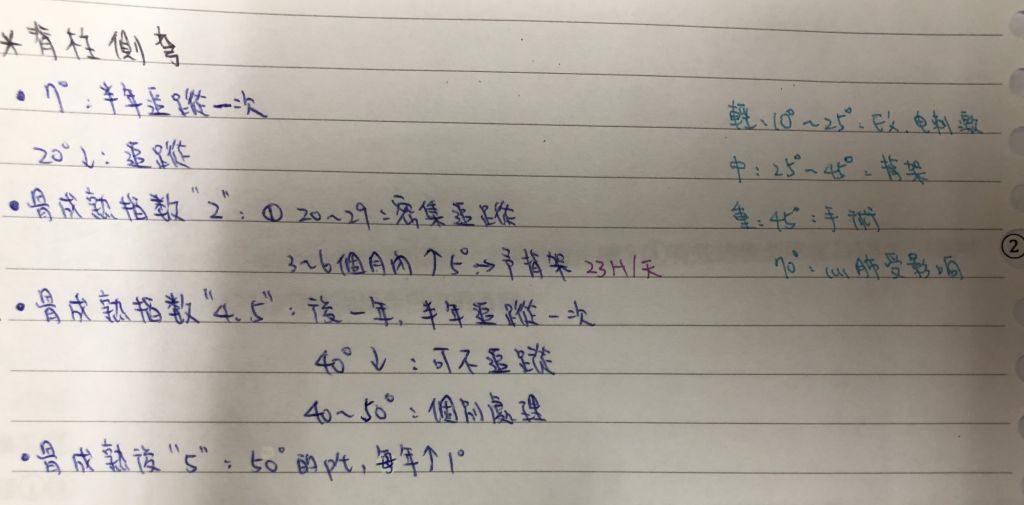 *脊柱側彎
• 7°:半年追蹤一次
20°↓:追蹤
• 骨成熟指數"2":① 20~29:密集追蹤
3~6個月內↑5°→予背架 23H/天
• 骨成熟指數"4.5":後一年,半年追蹤一次
40°↓:可不追蹤
40~50°:個別處理
• 骨成熟後"5":50°的pt,每年↑1°
輕:10°~25°:Ex.電刺激
中:25°~45°:背架
重:45°:手術
70°:肺受影響
②